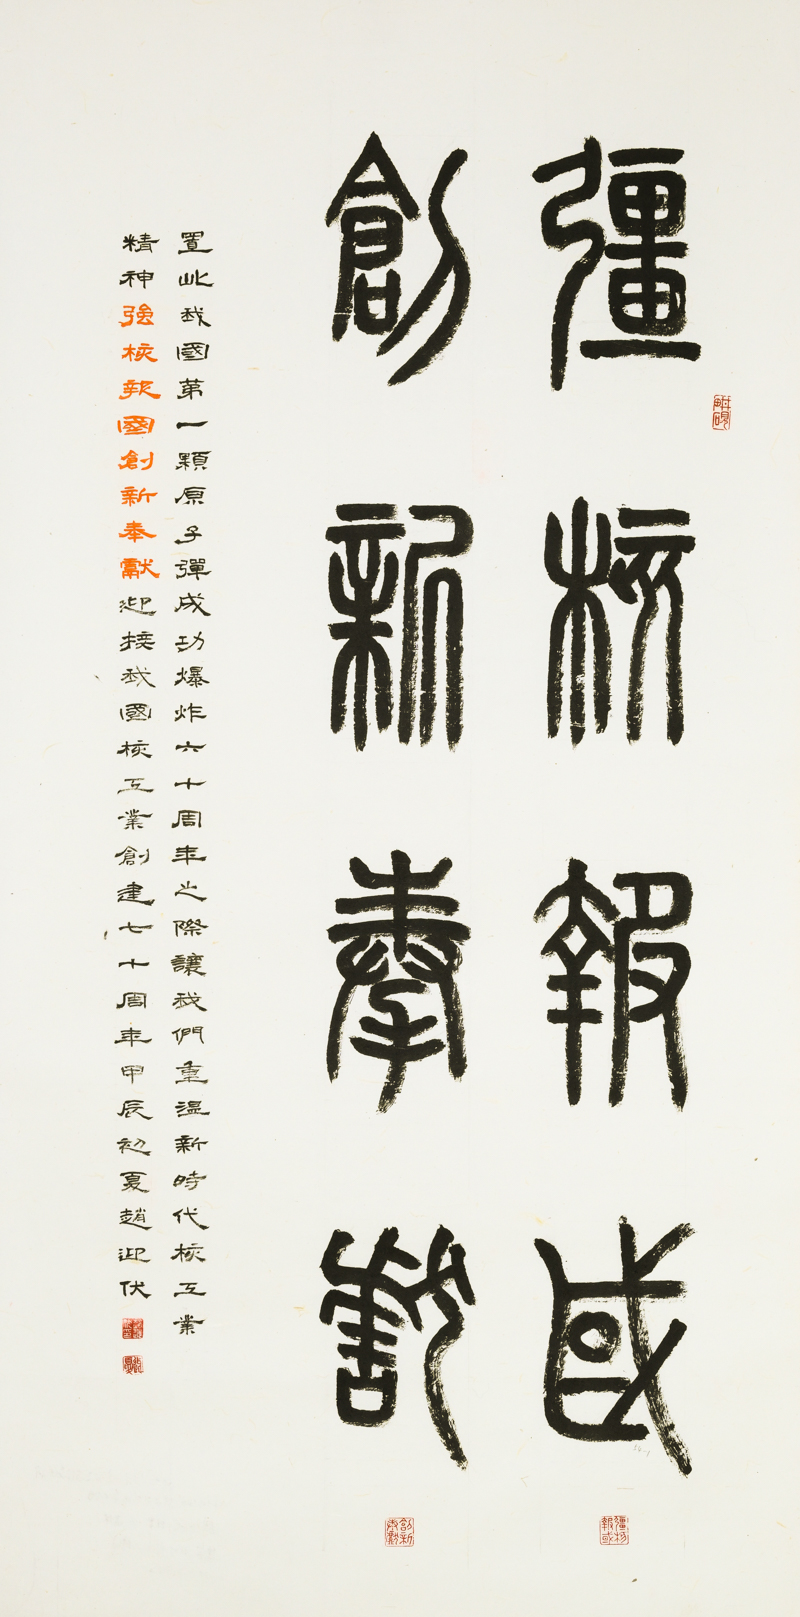 彊核報國
創新奉獻
置此我國第一顆原子彈成功爆炸六十周年之際讓我們重溫新時代核工業
精神強核報國創新奉獻迎接我國核工業創建七十周年甲辰初夏趙迎伏
彊核報國
創新奉獻